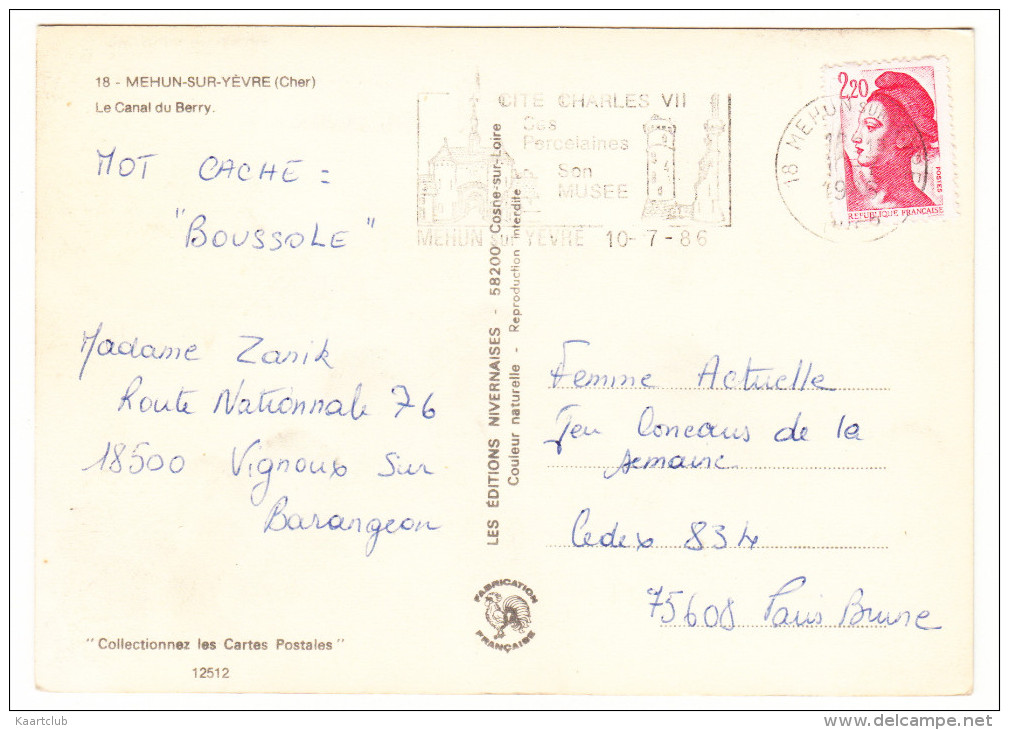 18 - MEHUN-SUR-YÈVRE (Cher)
Le Canal du Berry.
MOT CACHE =
"BOUSSOLE"
Madame Zanik
Route Nationnale 76
18500 Vignoux Sur
Barangeon
"Collectionnez les Cartes Postales"
12512
LES ÉDITIONS NIVERNAISES - 58200 Cosne-sur-Loire
Couleur naturelle - Reproduction interdite
FABRICATION
FRANÇAISE
CITE CHARLES VII
Ses
Porcelaines
Son
MUSEE
MEHUN sur YEVRE 10-7-86
18 MEHUN SUR
2,20
POSTES
REPUBLIQUE FRANCAISE
Femme Actuelle
Jeu Concours de la
semaine
Cedex 834
75608 Paris Brune
Kaartclub
www.delcampe.net